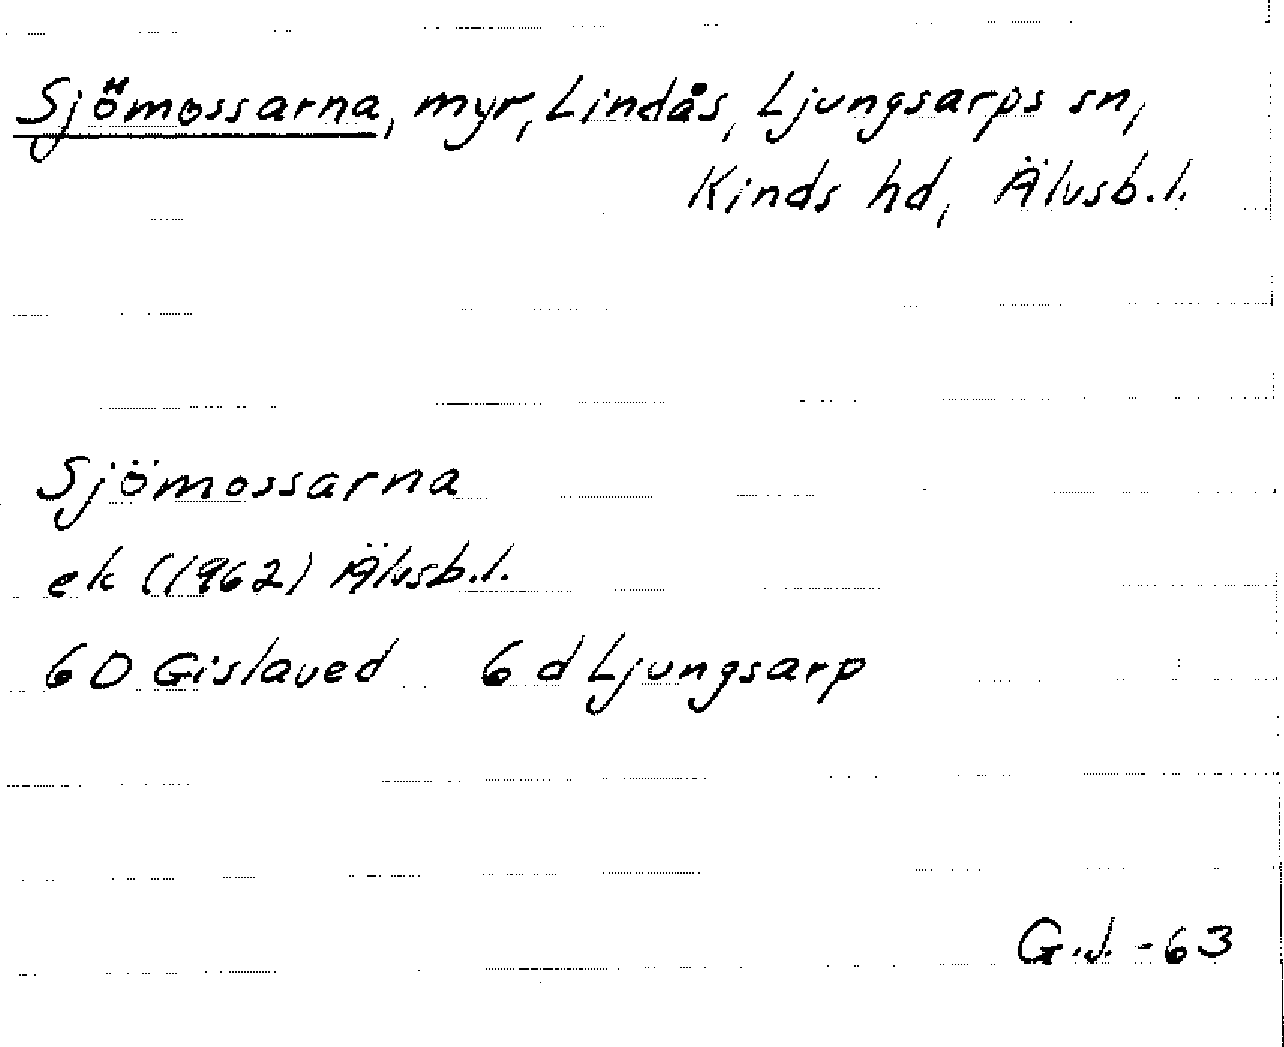 Sjömossarna, myr, Lindås, Ljungsarps sn,
Kinds hd, Älvsb.l.
Sjömossarna
ek (1962) Älvsb.l.
6D Gislaved 6d Ljungsarp
G.J. -63